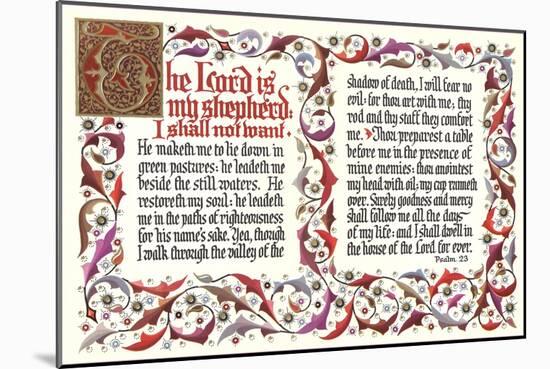 The Lord is
my shepherd:
I shall not want.
He maketh me to lie down in
green pastures: he leadeth me
beside the still waters. He
restoreth my soul: he leadeth
me in the paths of righteousness
for his name's sake. Yea, though
I walk through the valley of the
shadow of death, I will fear no
evil: for thou art with me; thy
rod and thy staff they comfort
me. Thou preparest a table
before me in the presence of
mine enemies: thou anointest
my head with oil; my cup runneth
over. Surely goodness and mercy
shall follow me all the days
of my life: and I shall dwell in
the house of the Lord for ever.
Psalm 23